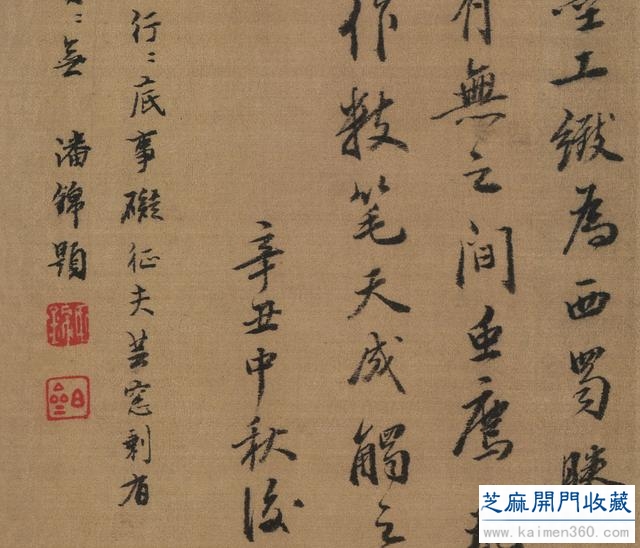 工緻為西蜀
有無之間鷹
作數笔天成觸之
辛丑中秋後
行〻底事礙征夫芸窓剩有
〻無 潘錦題
芝麻開門收藏
www.kaimen360.com